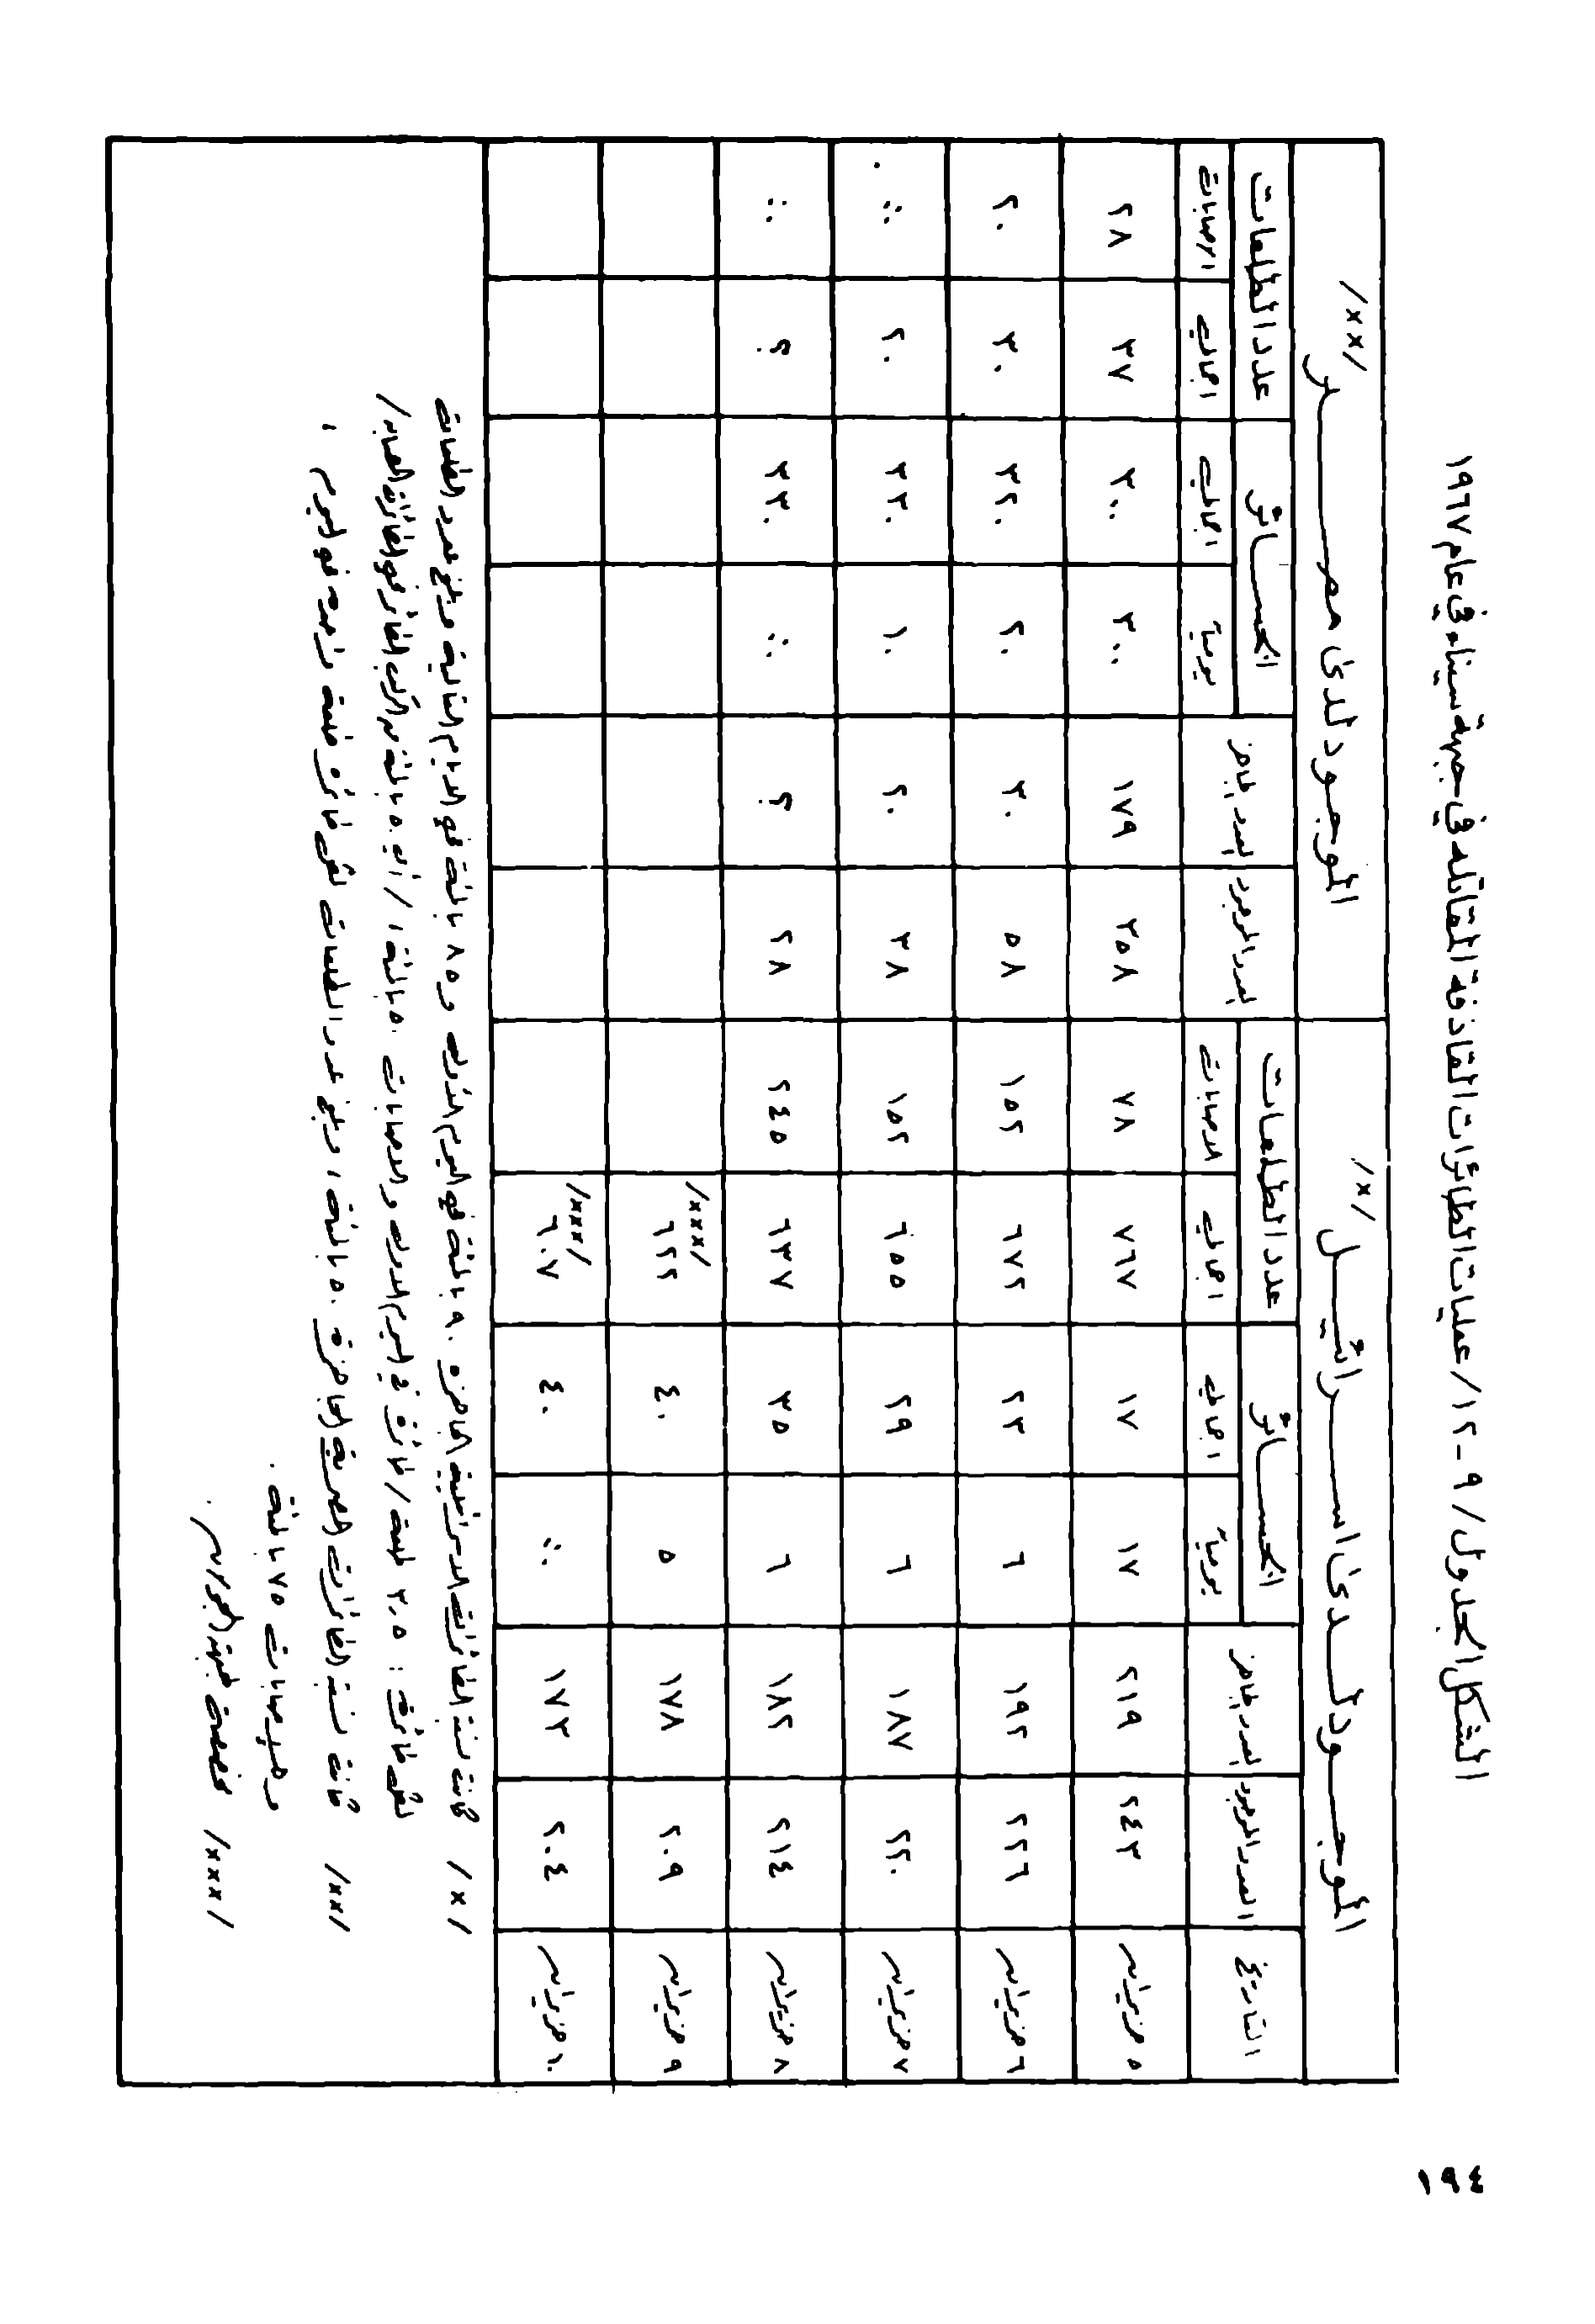 الشكل الجدول / ٩ - ١٢ / عمليات الطائرات القاذفة المقاتله في جبهة سيناء في عام ١٩٦٧
الموجود لدى اسرائيل /x/ الموجود لدى مصر /xx/
التاريخ العدد الموجود العدد الجاهز الخسائر عدد الطلعات العدد الموجود العدد الجاهز الخسائر عدد الطلعات
يومية اجمالية اجمالية الاصابات يومية اجمالية اجمالية الاصابات
٥ حزيران ٢٤٣ ٢١٩ ١٧ ١٧ ٧٦٧ ٧٨ ٣٥٨ ١٧٩ ٣٠٠ ٣٠٠ ٣٧ ٢٨
٦ حزيران ٢٢٦ ١٩٢ ٦ ٢٣ ٦٧٢ ١٥٢ ٥٨ ٣٠ ٢٠ ٣٢٠ ٣٠ ٢٠
٧ حزيران ٢٢٠ ١٨٧ ٦ ٢٩ ٦٥٥ ١٥٢ ٣٨ ٢٠ ١٠ ٣٣٠ ٢٠ ؟
٨ حزيران ٢١٤ ١٨٢ ٦ ٣٥ ٦٣٧ ٢٤٥ ٢٨ ؟ ٣٣٠ ؟
٩ حزيران ٢٠٩ ١٧٨ ٥ ٤٠ ٦٢٢ /xxx/
١٠ حزيران ٢٠٤ ١٧٣ ٤٠ ٦٠٧ /xxx/
/x/ كانت نسبة الطائرات الاسرائيلية الجاهزه ٩٠ بالمئة في اليوم الأول و ٨٥ بالمئة في الايام التالية وبلغ عدد الطلعات
لكل طائرة : ٣,٥ طلعة / طائرة في اليوم الأول والاصابات ٥٠ بالمئة ، / أي ٥٠ بالمئة من الطائرات المصابه /
/xx/ كانت نسبة الطائرات المصرية الجاهزة ٥٠ بالمئة ، وبلغ عدد الطلعات لكل طائره طلعة واحده في اليوم ،
والاصابات ٧٥ بالمئة .
/xxx/ مخصصة لجبهة الجولان .
١٩٤